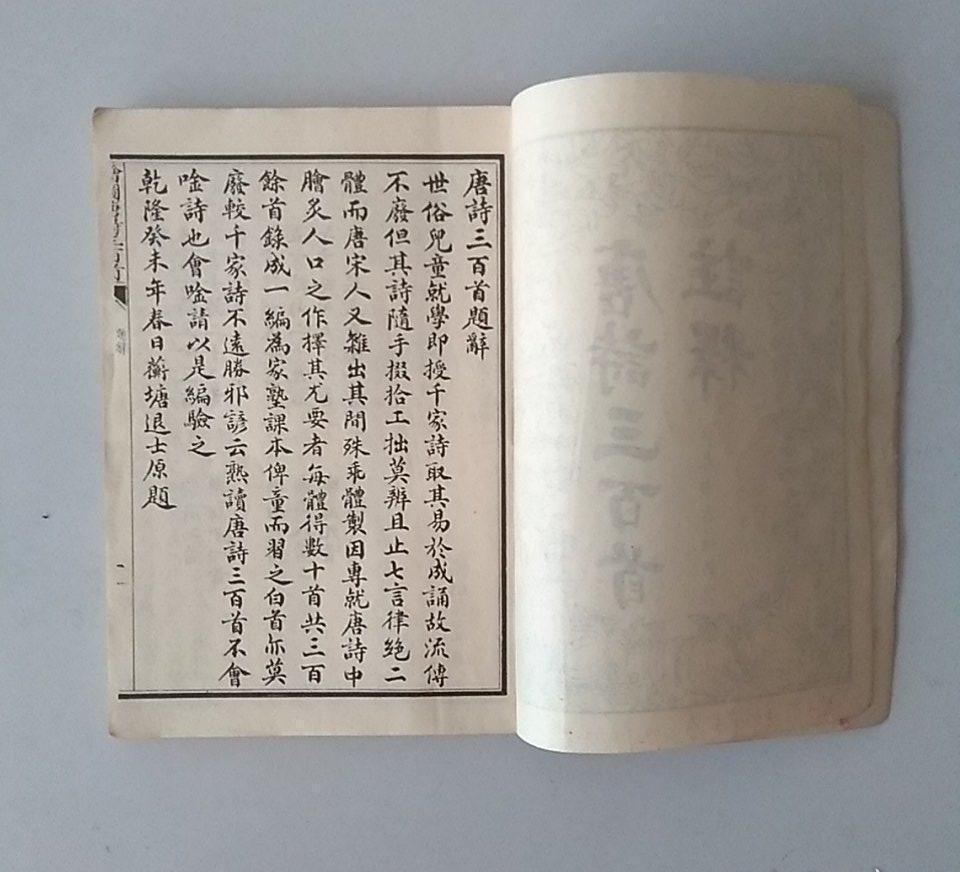 唐詩三百首題辭
世俗兒童就學即授千家詩取其易於成誦故流傳
不廢但其詩隨手掇拾工拙莫辨且止七言律絕二
體而唐宋人又雜出其間殊乖體製因專就唐詩中
膾炙人口之作擇其尤要者每體得數十首共三百
餘首錄成一編為家塾課本俾童而習之白首亦莫
廢較千家詩不遠勝邪諺云熟讀唐詩三百首不會
唫詩也會唫請以是編驗之
乾隆癸未年春日蘅塘退士原題
註釋
唐詩三百首